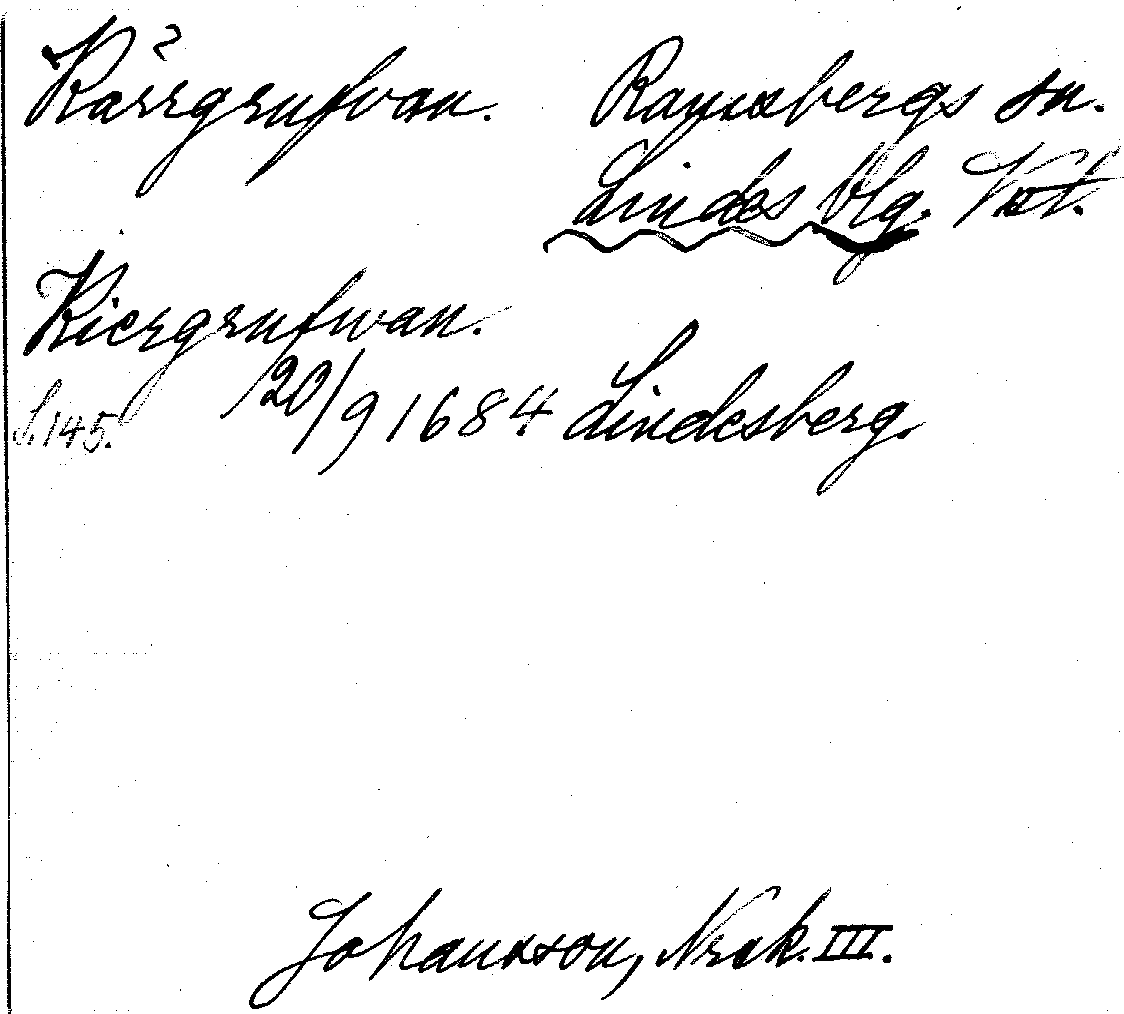 Kärrgrufvan. Ramsbergs sn.
Lindes blg. Vstm.
Kiergrufwan.
S. 145. 20/9 1684 Lindesberg.
Johansson, Norask. III.